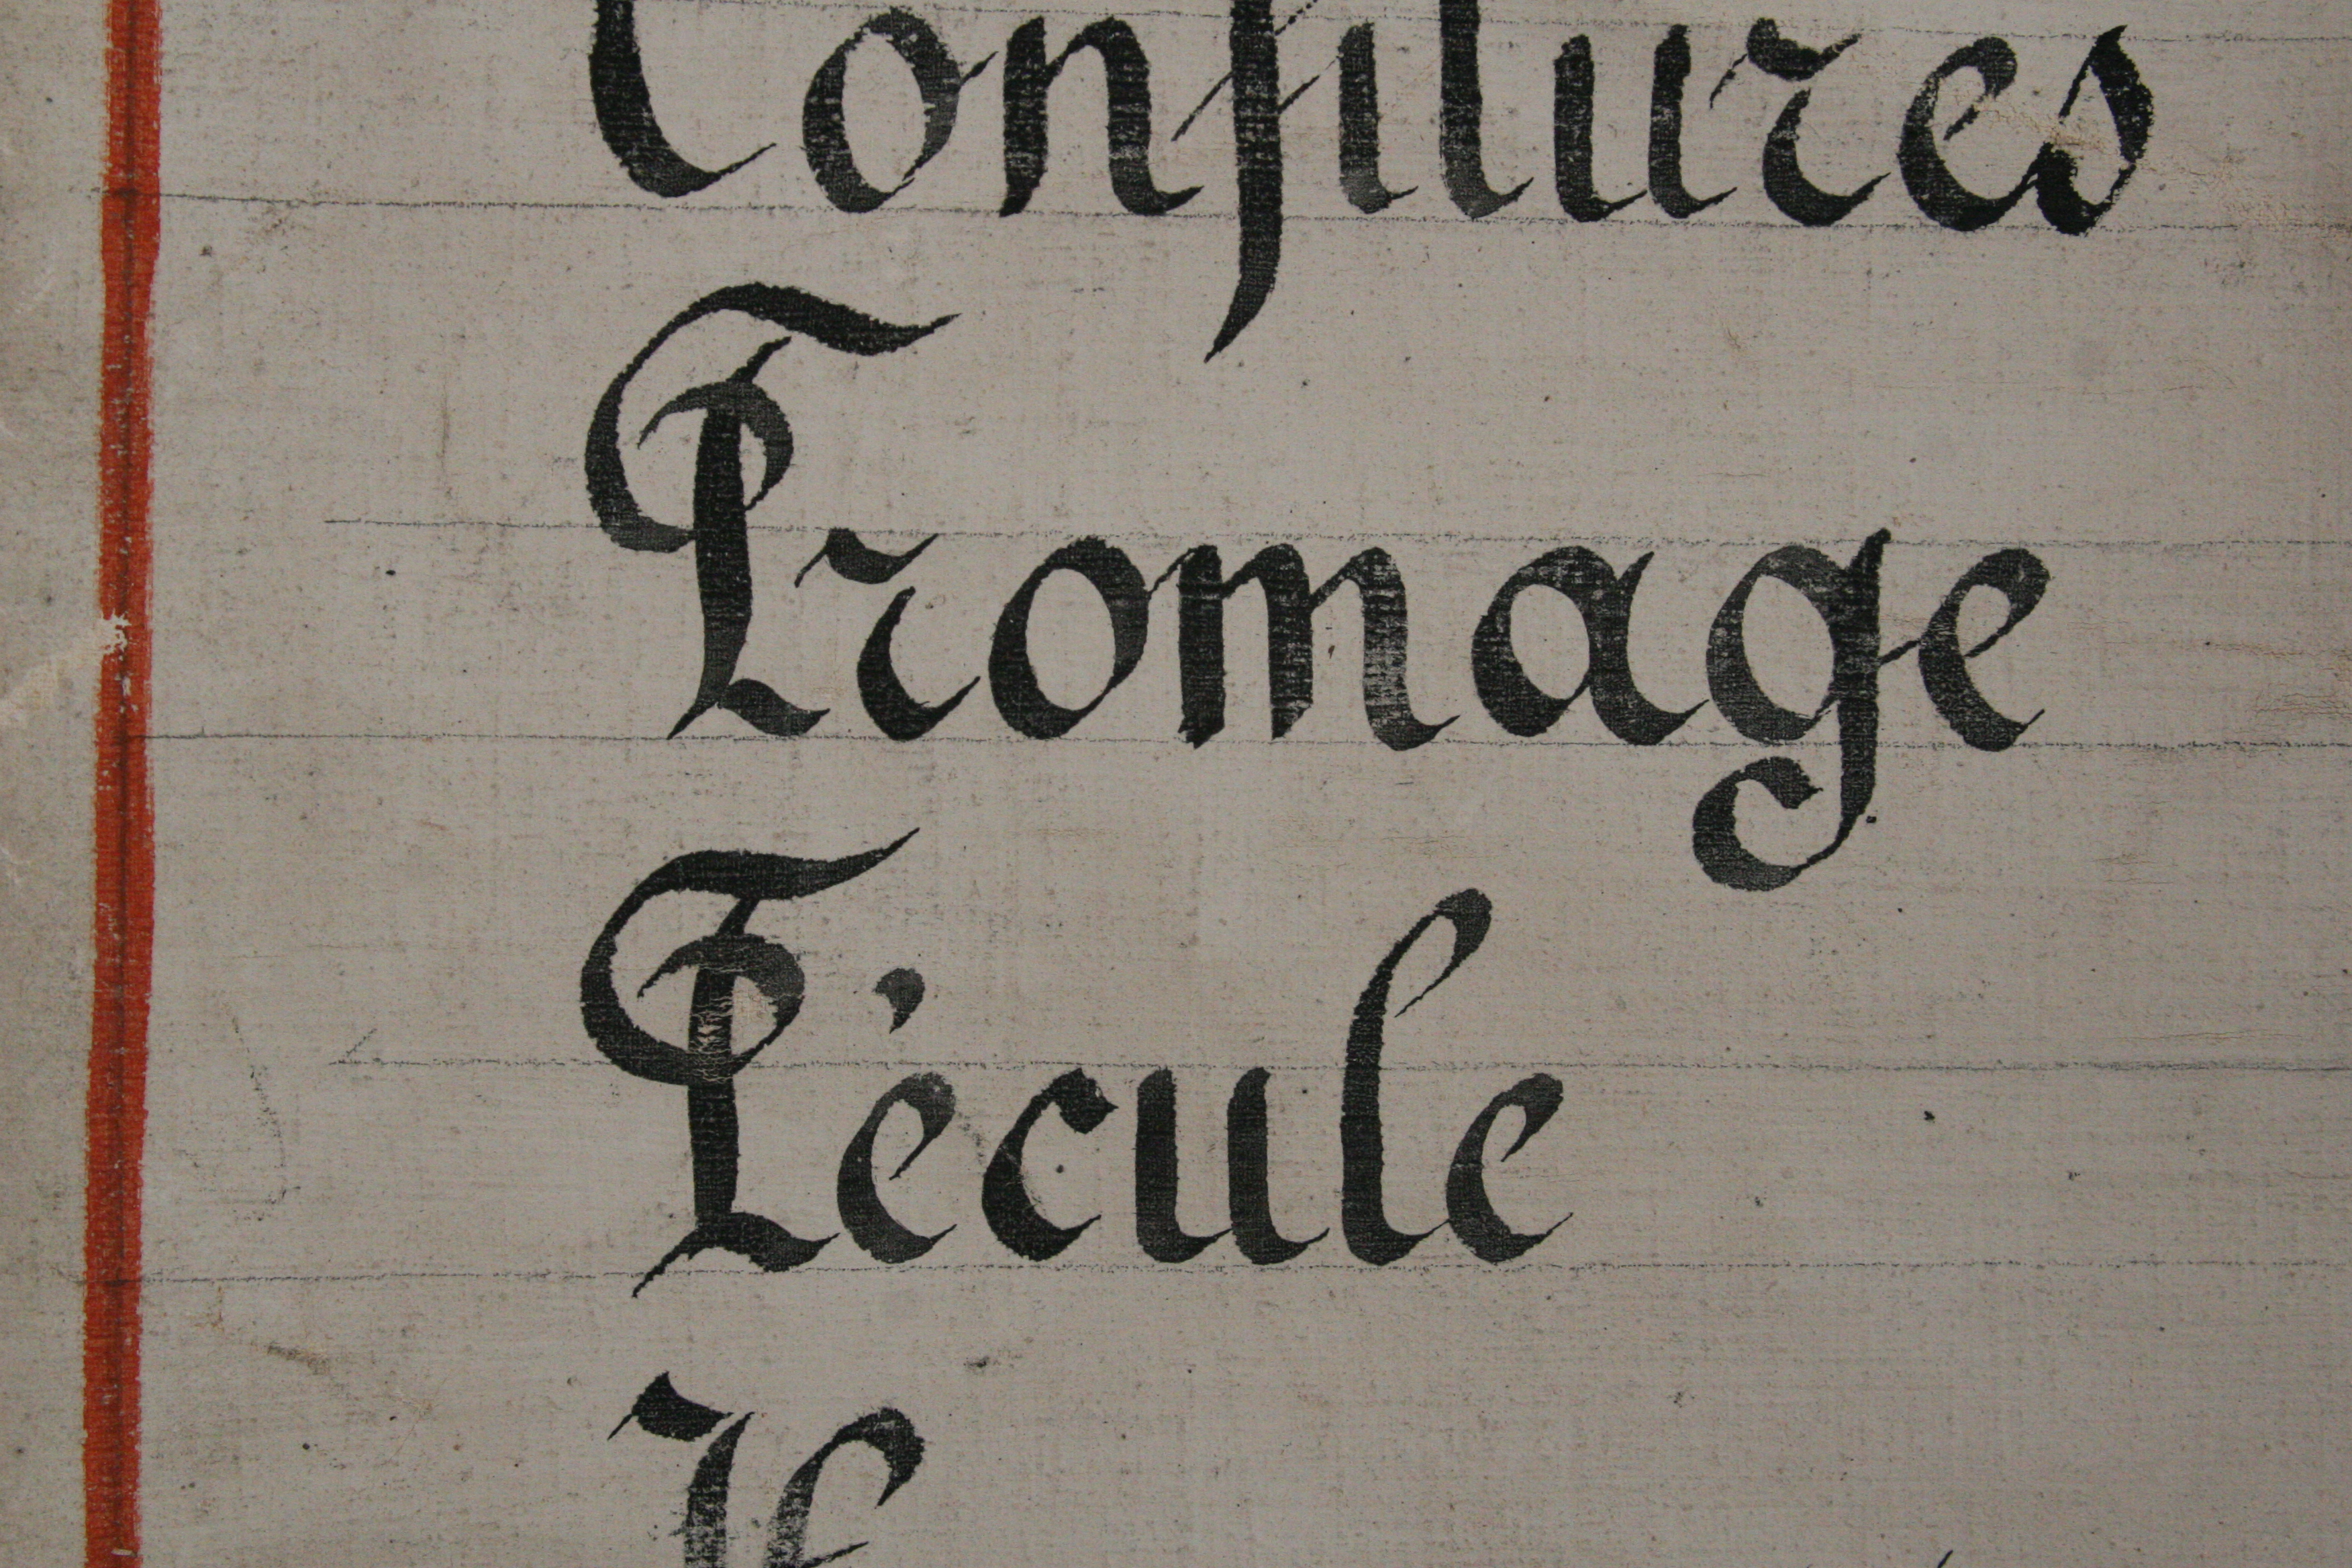 Confitures
Fromage
Fécule